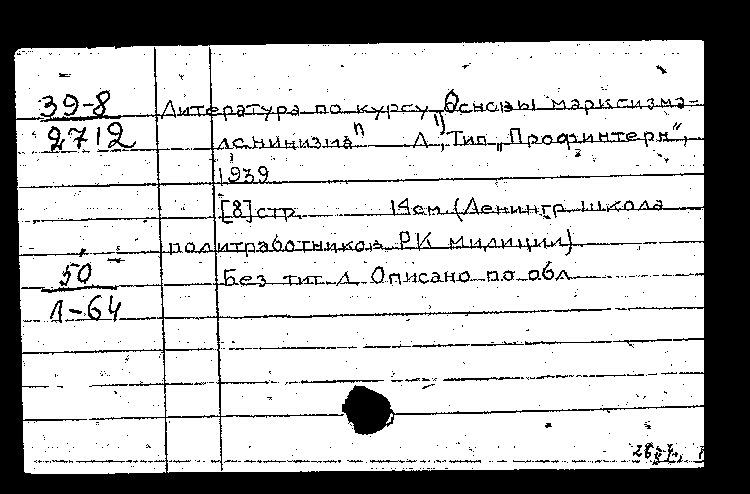 39-8
2712
Литература по курсу „Основы марксизма-
ленинизма" Л, Тип „Профинтерн",
1939
[8] стр. 14 см (Ленингр школа
политработников РК милиции)
50
Л-64
Без тит л Описано по обл